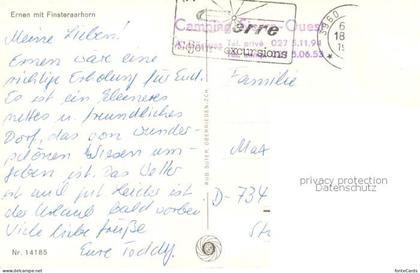 Ernen mit Finsteraarhorn
Meine Lieben!
Ernen war eine
richtige Erholung für Euch.
Es ist ein kleineres
nettes u. freundliches
Dorf, das von wunder-
schönen Wiesen um-
geben ist. Das Wetter
ist auch gut. Leider ist
der Urlaub bald vorbei
Viele liebe Grüße
Eure Toddy.
Nr. 14185
RUD. SUTER, OBERRIEDEN-ZCH.
Camping
Ouest
Tel. privé 027 5.11.94
5.06.53
sierre
séjour excursions
3960
6
18
Familie
D-734
privacy protection
Datenschutz
www.delcampe.net
fonteCards